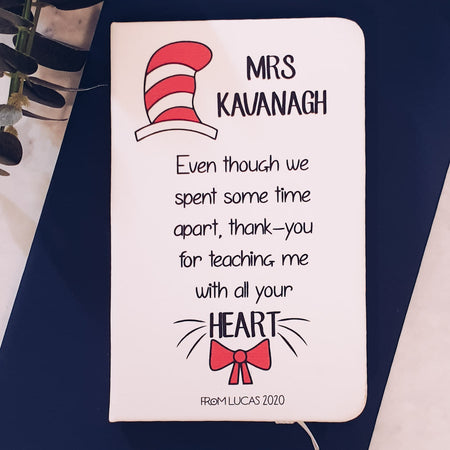 MRS
KAVANAGH
Even though we
spent some time
apart, thank-you
for teaching me
with all your
HEART
FROM LUCAS 2020